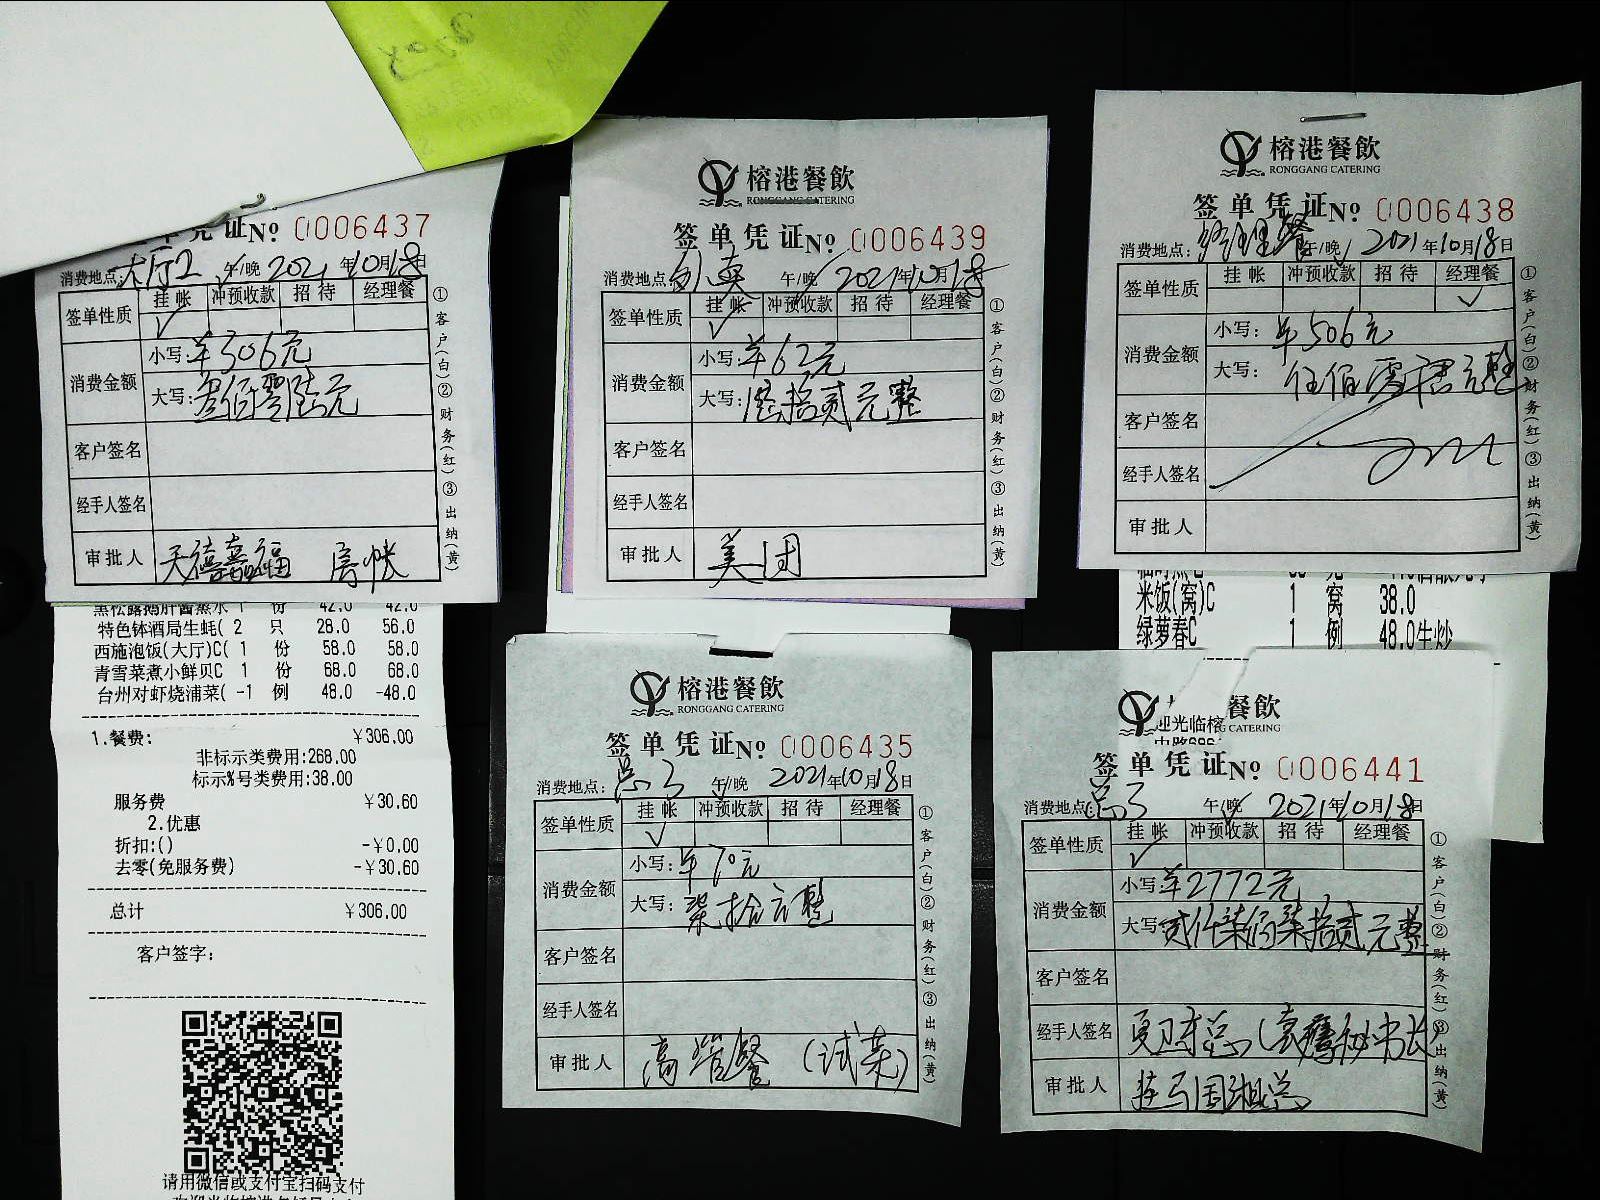 签单凭证 № 0006437
消费地点：大厅2 午/晚 2021年10月18日
挂帐 冲预收款 招待 经理餐
签单性质 ✓
消费金额 小写：¥306元
大写：叁佰零陆元
客户签名
经手人签名
审批人 天禧嘉福 房帐
①客户(白)②财务(红)③出纳(黄)
黑松露鹅肝酱蒸水 1 份 42.0 42.0
特色钵酒局生蚝( 2 只 28.0 56.0
西施泡饭(大厅)C( 1 份 58.0 58.0
青雪菜煮小鲜贝C 1 份 68.0 68.0
台州对虾烧浦菜( -1 例 48.0 -48.0
1.餐费: ¥306.00
非标示类费用:268.00
标示%号类费用:38.00
服务费 ¥30.60
2.优惠
折扣:() -¥0.00
去零(免服务费) -¥30.60
总计 ¥306.00
客户签字:
请用微信或支付宝扫码支付
榕港餐飲
RONGGANG CATERING
签单凭证 № 0006439
消费地点： 午/晚 2021年10月18日
挂帐 冲预收款 招待 经理餐
签单性质 ✓
消费金额 小写：¥62元
大写：陆拾贰元整
客户签名
经手人签名
审批人 美团
①客户(白)②财务(红)③出纳(黄)
榕港餐飲
RONGGANG CATERING
签单凭证 № 0006438
消费地点：经理餐 午/晚 2021年10月18日
挂帐 冲预收款 招待 经理餐
签单性质 ✓
消费金额 小写：¥506元
大写：伍佰零陆元整
客户签名
经手人签名
审批人
①客户(白)②财务(红)③出纳(黄)
米饭(窝)C 1 窝 38.0
绿萝春C 1 例 48.0生炒
榕港餐飲
RONGGANG CATERING
签单凭证 № 0006435
消费地点：总3 午/晚 2021年10月18日
挂帐 冲预收款 招待 经理餐
签单性质 ✓
消费金额 小写：¥70元
大写：柒拾元整
客户签名
经手人签名
审批人 高管餐（试菜）
①客户(白)②财务(红)③出纳(黄)
餐飲
迎光临榕
CATERING
签单凭证 № 0006441
消费地点：总3 午/晚 2021年10月18日
挂帐 冲预收款 招待 经理餐
签单性质 ✓
消费金额 小写：¥2772元
大写：贰仟柒佰柒拾贰元整
客户签名
经手人签名 夏卫 总（袁 秘书长）
审批人 挂马国湘总
①客户(白)②财务(红)③出纳(黄)